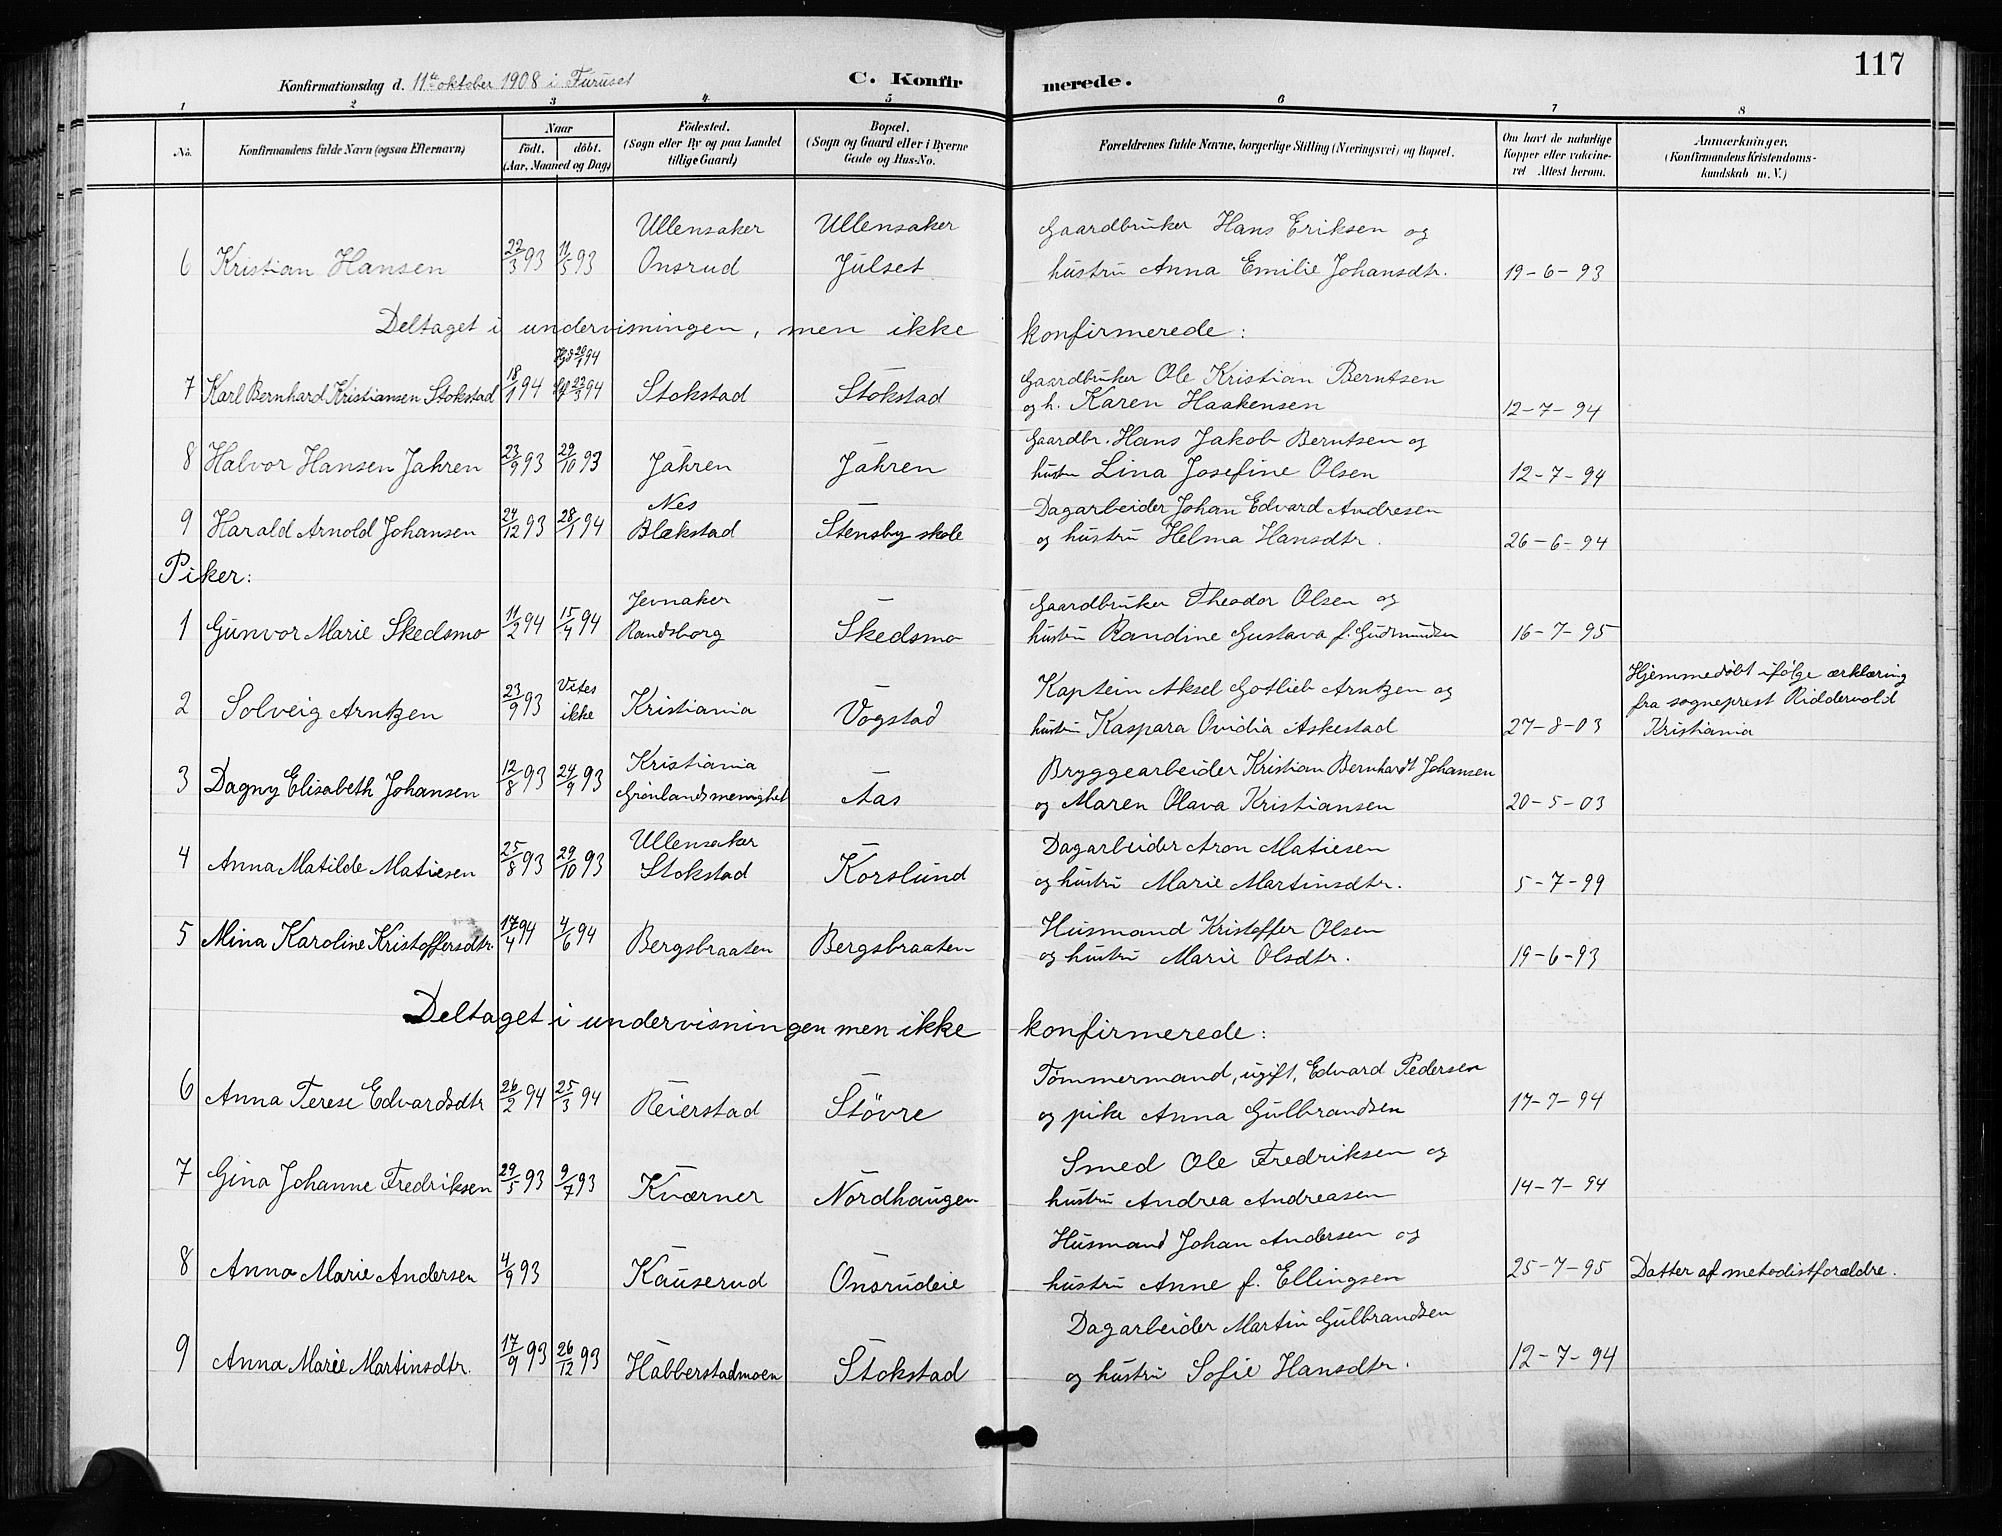 117
Konfirmationsdag d. 11te oktober 1908 i Furuset C. Konfir merede.
1 2 3 4 5 6 7 8
No. Konfirmandens fulde Navn (ogsaa Efternavn) Naar födt. döbt. (Aar, Maaned og Dag) Födested. (Sogn eller By og paa Landet tillige Gaard) Bopæl. (Sogn og Gaard eller i Byerne Gade og Hus-No. Forældrenes fulde Navne, borgerlige Stilling (Næringsvei) og Bopæl. Om havt de naturlige Kopper eller vakcineret Attest herom. Anmærkninger. (Konfirmandens Kristendomskundskab m. V.)
Ullensaker Ullensaker Gaardbruker Hans Eriksen og
6 Kristian Hansen 22/3 93 11/5 93 Onsrud Julset hustru Anna Emilie Johansdtr. 19-6-93
Deltaget i undervisningen, men ikke konfirmerede:
Hjd 20/1 94 Gaardbruker Ole Kristian Berntsen
7 Karl Bernhard Kristiansen Stokstad 18/1 94 23/3 94 Stokstad Stokstad og h. Karen Haakensen 12-7-94
Gaardbr. Hans Jakob Berntsen og
8 Halvor Hansen Jahren 23/9 93 29/10 93 Jahren Jahren hustru Lina Josefine Olsen 12-7-94
Nes Dagarbeider Johan Edvard Andresen
9 Harald Arnold Johansen 24/12 93 28/1 94 Blækstad Stensby skole og hustru Helma Hansdtr. 26-6-94
Piker:
Jevnaker Gaardbruker Theodor Olsen og
1 Gunvor Marie Skedsmo 11/2 94 15/4 94 Randsborg Skedsmo hustru Randine Gustava f. Gudmundsen 16-7-95
Vites Kaptein Aksel Gotlieb Arntzen og Hjemmedøbt ifølge erklæring
2 Solveig Arntzen 23/9 93 ikke Kristiania Vogstad hustru Kaspara Ovidia Askestad 27-8-03 fra sogneprest Riddervold
Kristiania
Kristiania Bryggearbeider Kristian Bernhardt Johansen
3 Dagny Elisabeth Johansen 12/8 93 24/9 93 Grønlandsmenighet Aas og Maren Olava Kristiansen 20-5-03
Ullensaker Dagarbeider Aron Matiesen
4 Anna Matilde Matiesen 25/8 93 29/10 93 Stokstad Korslund og hustru Marie Martinsdtr. 5-7-99
Husmand Kristoffer Olsen
5 Mina Karoline Kristoffersdtr. 17/4 94 4/6 94 Bergsbraaten Bergsbraaten og hustru Marie Olsdtr. 19-6-93
Deltaget i undervisningen men ikke konfirmerede:
Tømmermand, ugift, Edvard Pedersen
6 Anna Terese Edvardsdtr 26/2 94 25/3 94 Reierstad Støvre og pike Anna Gulbrandsen 17-7-94
Smed Ole Fredriksen og
7 Gina Johanne Fredriksen 29/5 93 9/7 93 Kværner Nordhaugen hustru Andrea Andreasen 14-7-94
Husmand Johan Andersen og
8 Anna Marie Andersen 4/9 93 Kauserud Onsrudeie hustru Anne f. Ellingsen 25-7-95 Datter af metodistforældre.
Dagarbeider Martin Gulbrandsen
9 Anna Marie Martinsdtr. 17/9 93 26/12 93 Habberstadmoen Stokstad og hustru Sofie Hansdtr. 12-7-94